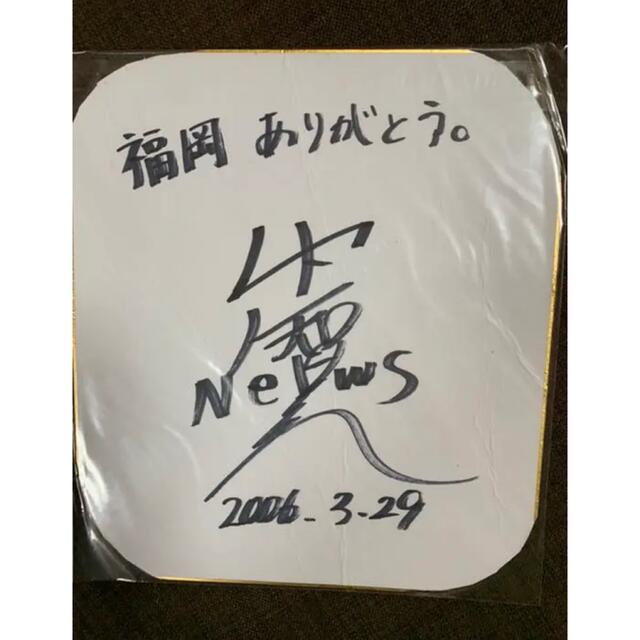 福岡 ありがとう。
NewS
2006.3.29